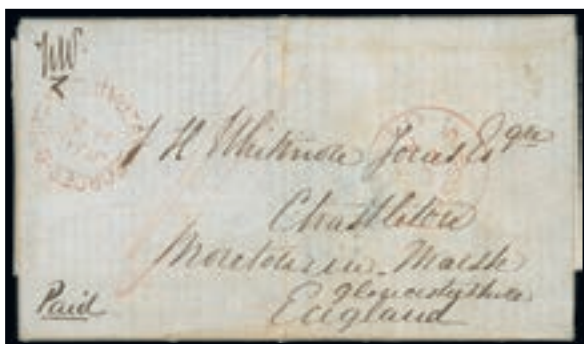 J H Whitmore Jones Esqre
Chastleton
Moreton in Marsh
Gloucestershire
England
Paid